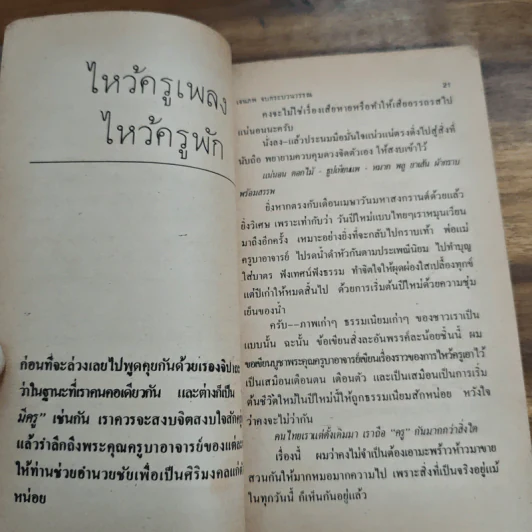 ไหว้ครูเพลง
ไหว้ครูพัก
ก่อนที่จะล่วงเลยไปพูดคุยกันด้วยเรื่องจิปา
ว่าในฐานะที่เราคนคอเดียวกัน และต่างก็เป็น
มีครู" เช่นกัน เราควรจะสงบจิตสงบใจสัก
แล้วรำลึกถึงพระคุณครูบาอาจารย์ของแต่ละ
ให้ท่านช่วยอำนวยชัยเพื่อเป็นศิริมงคลแก่
หน่อย
เจนภพ จบกระบวนวรรณ 21
คงจะไม่ใช่เรื่องเสียหายหรือทำให้เสียอรรถรสไป
แน่นอนนะครับ
นั่งลง--แล้วประนมมือมั่นใจแน่วแน่ตรงดิ่งไปสู่สิ่งที่
นับถือ พยายามควบคุมดวงจิตตัวเอง ให้สงบเข้าไว้
แน่นอน ดอกไม้ - ธูปเทียนแพ - หมาก พลู ยาเส้น มีรายาบ
พร้อมสรรพ
ยิ่งหากตรงกับเดือนเมษาวันมหาสงกรานต์ด้วยแล้ว
ยิ่งวิเศษ เพราะเท่ากับว่า วันปีใหม่แบบไทยๆเราหมุนเวียน
มาถึงอีกครั้ง เหมาะอย่างยิ่งที่จะกลับไปกราบเท้า พ่อแม่
ครูบาอาจารย์ ไปรดน้ำดำหัวกันตามประเพณีนิยม ไปทำบุญ
ใส่บาตร ฟังเทศน์ฟังธรรม ทำจิตใจให้ผุดผ่องใสเปลื้องทุกข์
แต่ปีเก่าให้หมดสิ้นไป ด้วยการเริ่มต้นปีใหม่ด้วยความชุ่ม
เย็นของน้ำ
ครับ--ภาพเก่าๆ ธรรมเนียมเก่าๆ ของชาวเราเป็น
แบบนั้น ฉะนั้น ข้อเขียนสิ่งละอันพรรค์ละน้อยชิ้นนี้ ผม
ขอเขียนบูชาพระคุณครูบาอาจารย์เขียนเรื่องราวของการไหว้ครูเอาไว้
เป็นเสมือนเตือนตน เตือนตัว และเป็นเสมือนเป็นการเริ่ม
ต้นชีวิตใหม่ในปีใหม่นี้ให้ถูกธรรมเนียมสักหน่อย หวังใจ
ว่าคงจะไม่ว่ากัน
คนไทยเราแต่ดั้งเดิมมา เราถือ "ครู" กันมากกว่าสิ่งใด
เรื่องนี้ ผมว่าคงไม่จำเป็นต้องเอามะพร้าวห้าวมาขาย
สวนกันให้มากหมอมากความไป เพราะสิ่งที่เป็นจริงอยู่แม้
ในทุกวันนี้ ก็เห็นกันอยู่แล้ว